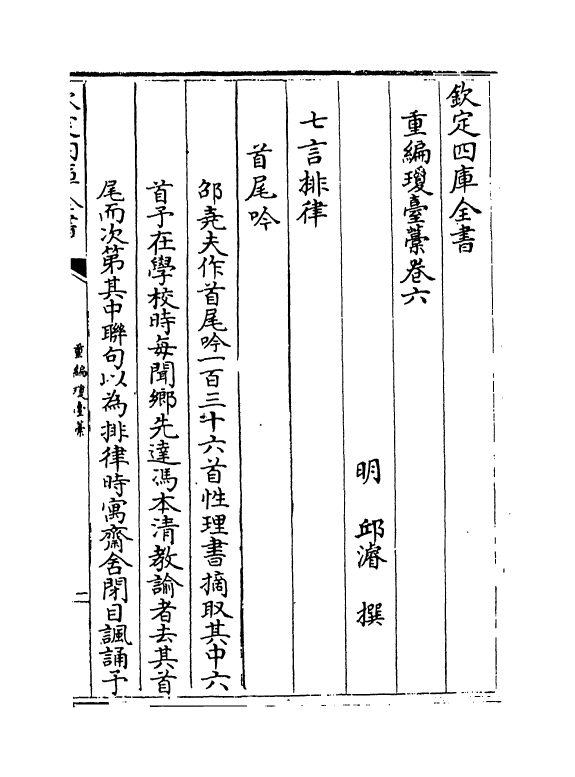 欽定四庫全書
重編瓊臺藳卷六
明 邱濬 撰
七言排律
首尾吟
邵堯夫作首尾吟一百三十六首性理書摘取其中六
首予在學校時每聞鄉先達馮本清教諭者去其首
尾而次第其中聯句以為排律時寓齋舍閉目諷誦予
欽定四庫全書
重編瓊臺藳